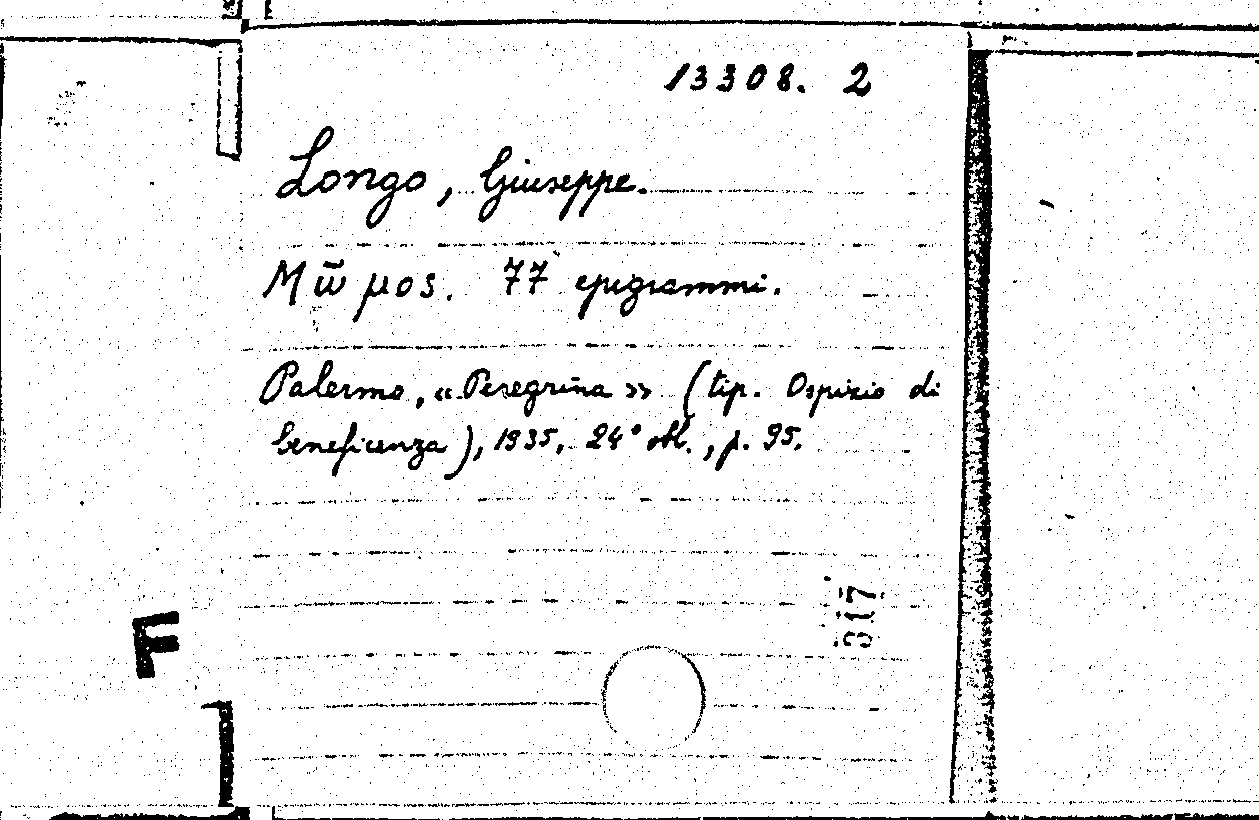 13308. 2
Longo, Giuseppe.
Μω̃μος. 77 epigrammi.
Palermo, «Peregrina» (tip. Ospizio di
beneficenza), 1935, 24° obl., p. 95.
317
F